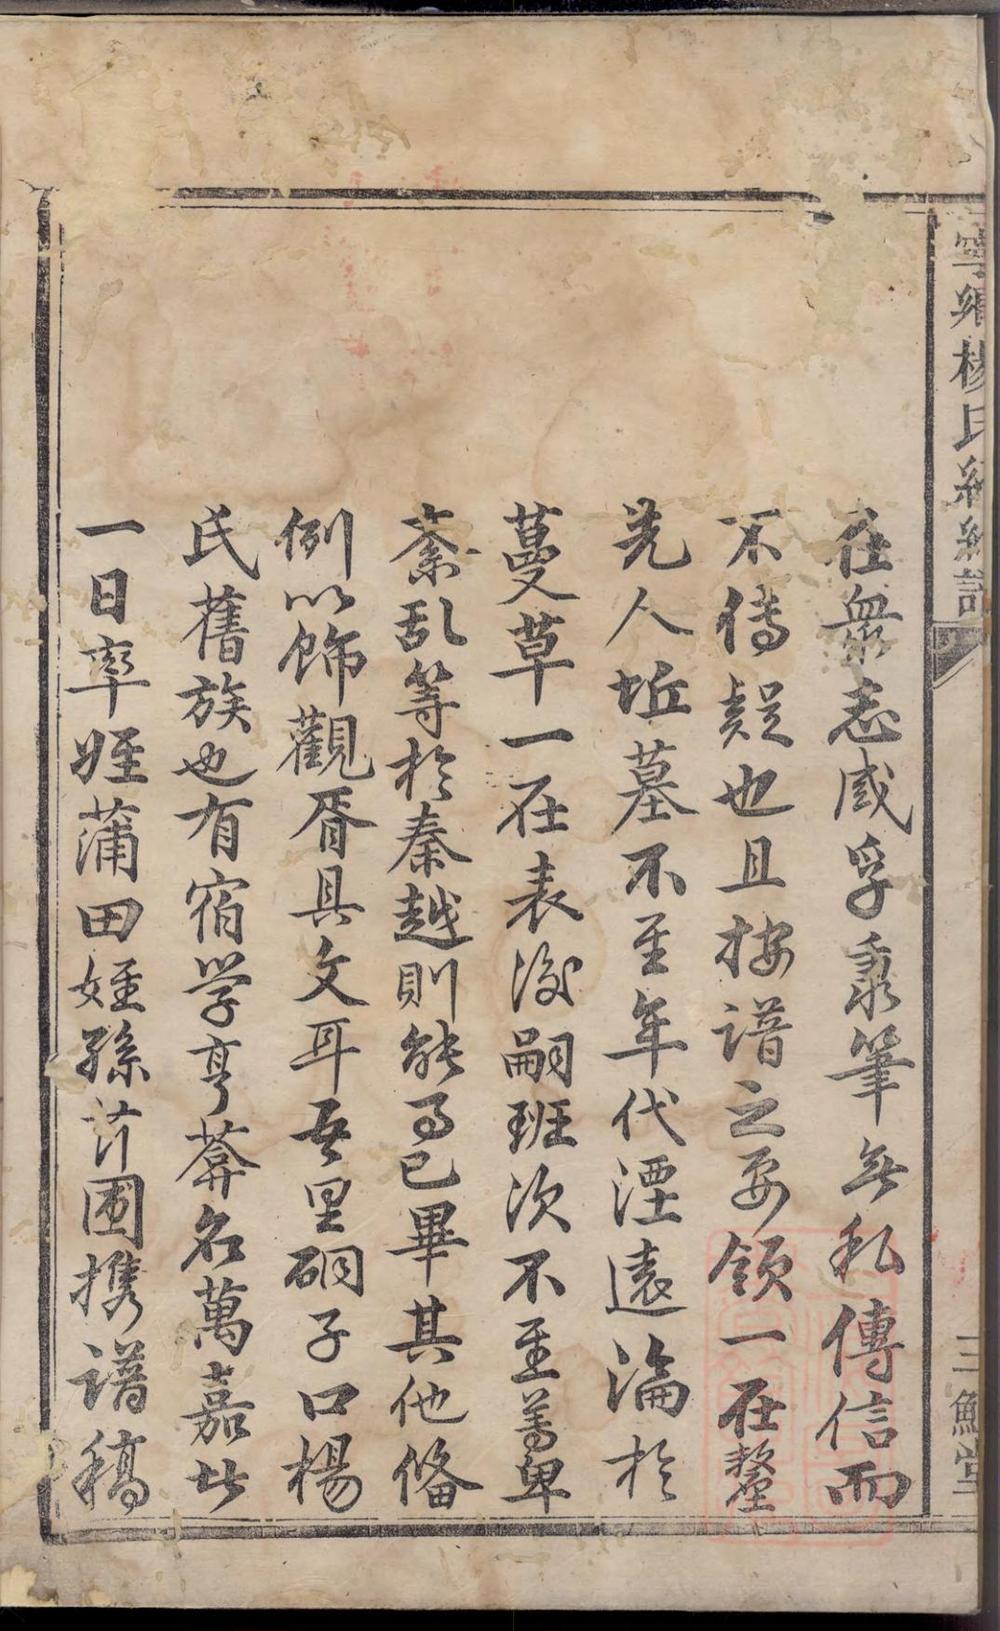 寧鄉楊氏續編譜
三鱣堂
在眾志咸孚秉筆無私傳信而
不傳疑也且按譜之要領一在釐
先人坵墓不至年代湮遠淪於
蔓草一在表後嗣班次不至尊卑
紊乱等於秦越則能事已畢其他俻
例以飾觀胥具文耳吾里硐子口楊
氏舊族也有宿学亨葊名萬嘉此
一日率姪蒲田姪孫圃携譜稿